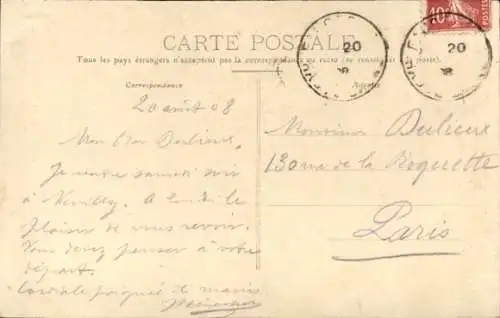 CARTE POSTALE
Tous les pays étrangers n'acceptent pas la correspondance au recto (se renseigner à la poste).
Correspondance
Adresse
10
POSTES
20
20
20 août 08
Mon cher Dulieux,
Je rentre samedi soir
à Neuilly. A lundi le
plaisir de vous revoir.
Vous devez penser à votre
départ.
Cordiale poignée de mains
Monsieur Dulieux
130 rue de la Roquette
Paris